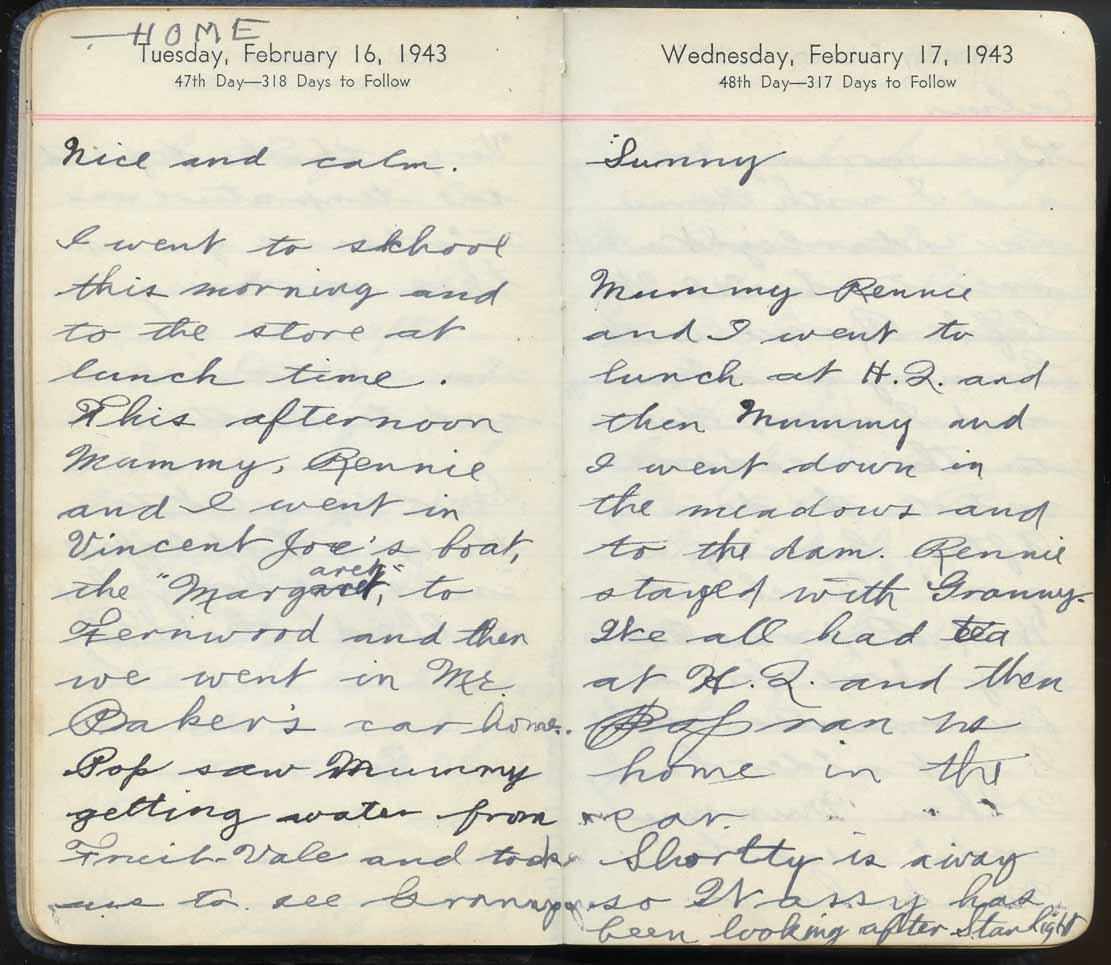 HOME
Tuesday, February 16, 1943
47th Day—318 Days to Follow
Nice and calm.
I went to skhool
this morning and
to the store at
lunch time.
This afternoon
Mummy, Rennie
and I went in
Vincent Joe's boat,
the "Margaret," to
Fernwood and then
we went in Mr.
Baker's car home.
Pop saw Mummy
getting water from
Fruit-Vale and took
us to see Granny.
Wednesday, February 17, 1943
48th Day—317 Days to Follow
Sunny
Mummy Rennie
and I went to
lunch at H.Q. and
then Mummy and
I went down in
the meadows and
to the dam. Rennie
stayed with Granny.
We all had tea
at H.Q. and then
Pop ran us
home in the
car.
Shortty is away
so Wassy has
been looking after Starlight